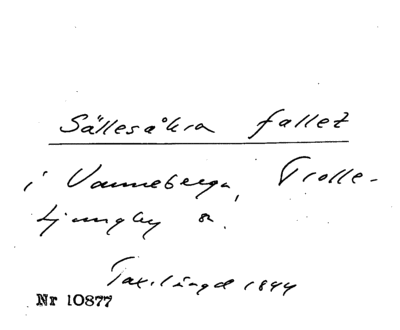 Sällesåkra fallet
i Vanneberga, Trolle-
Ljungby sn.
Taxl.längd 1844
Nr 10877